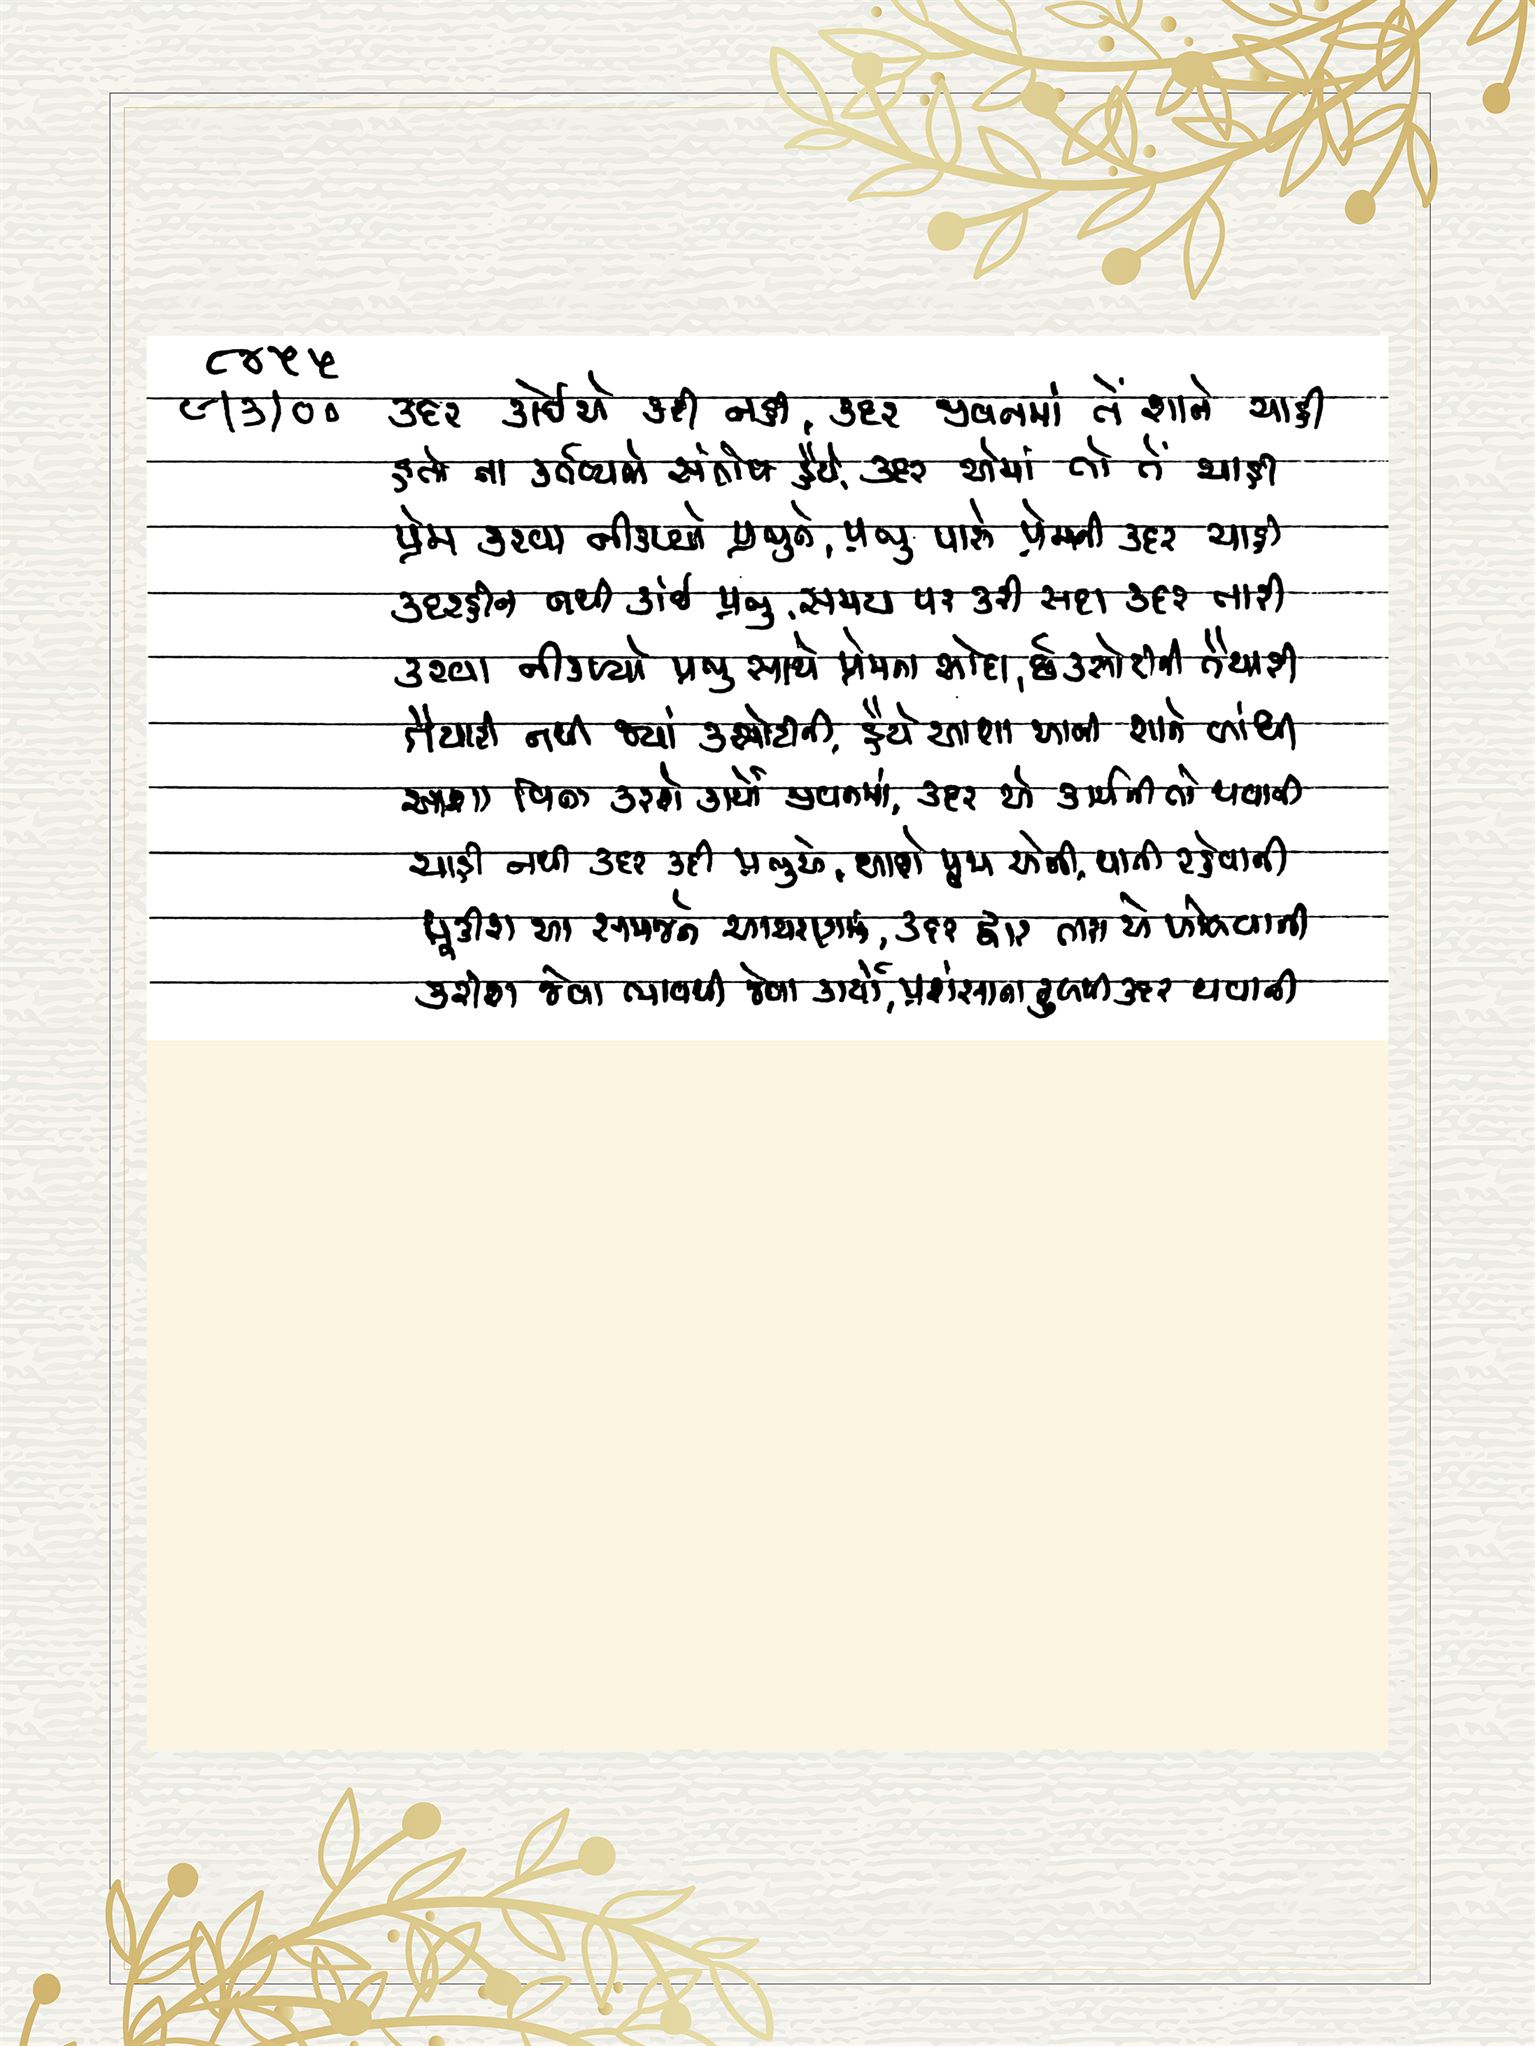 ૮૪૫૫
૯/૩/૦૦ કદર કોઈએ કરી નહી, કદર જીવનમાં તેં શાને ચાહી
હતો ના કર્તવ્યનો સંતોષ હૈયે, કદર એમાં તો તેં ચાહી
પ્રેમ કરવા નીકળ્યો પ્રભુને, પ્રભુ પાસે પ્રેમની કદર ચાહી
કદરહીન નથી કાંઈ પ્રભુ, સમય પર કરી સદા કદર તારી
કરવા નીકળ્યો પ્રભુ સાથે પ્રેમના સોદા, છે કસોટીની તૈયારી
તૈયારી નથી જ્યાં કસોટીની, હૈયે આશા આની શાને બાંધી
આશા વિના કરશે કાર્યો જીવનમાં, કદર એ કાર્યની તો થવાની
ચાહી નથી કદર કદી પ્રભુએ, આશે એની, થાતી રહેવાની
આ સમજને આચરણમાં, કદર દ્વાર તારા એ ખોલવાની
કરીશ જેવા ભાવથી જેવા કાર્યો, પ્રશંસાના કદર થવાની